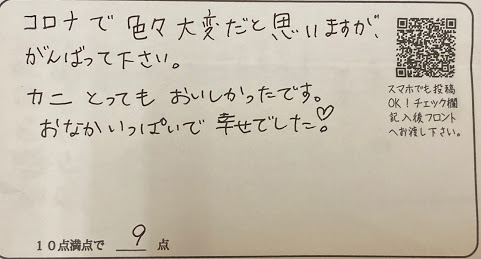 コロナで 色々 大変だと思いますが、
がんばって下さい。
カニ とっても おいしかったです。
おなかいっぱいで 幸せでした♡
スマホでも投稿
OK！チェック欄
記入後フロント
へお渡し下さい。
10点満点で 9 点